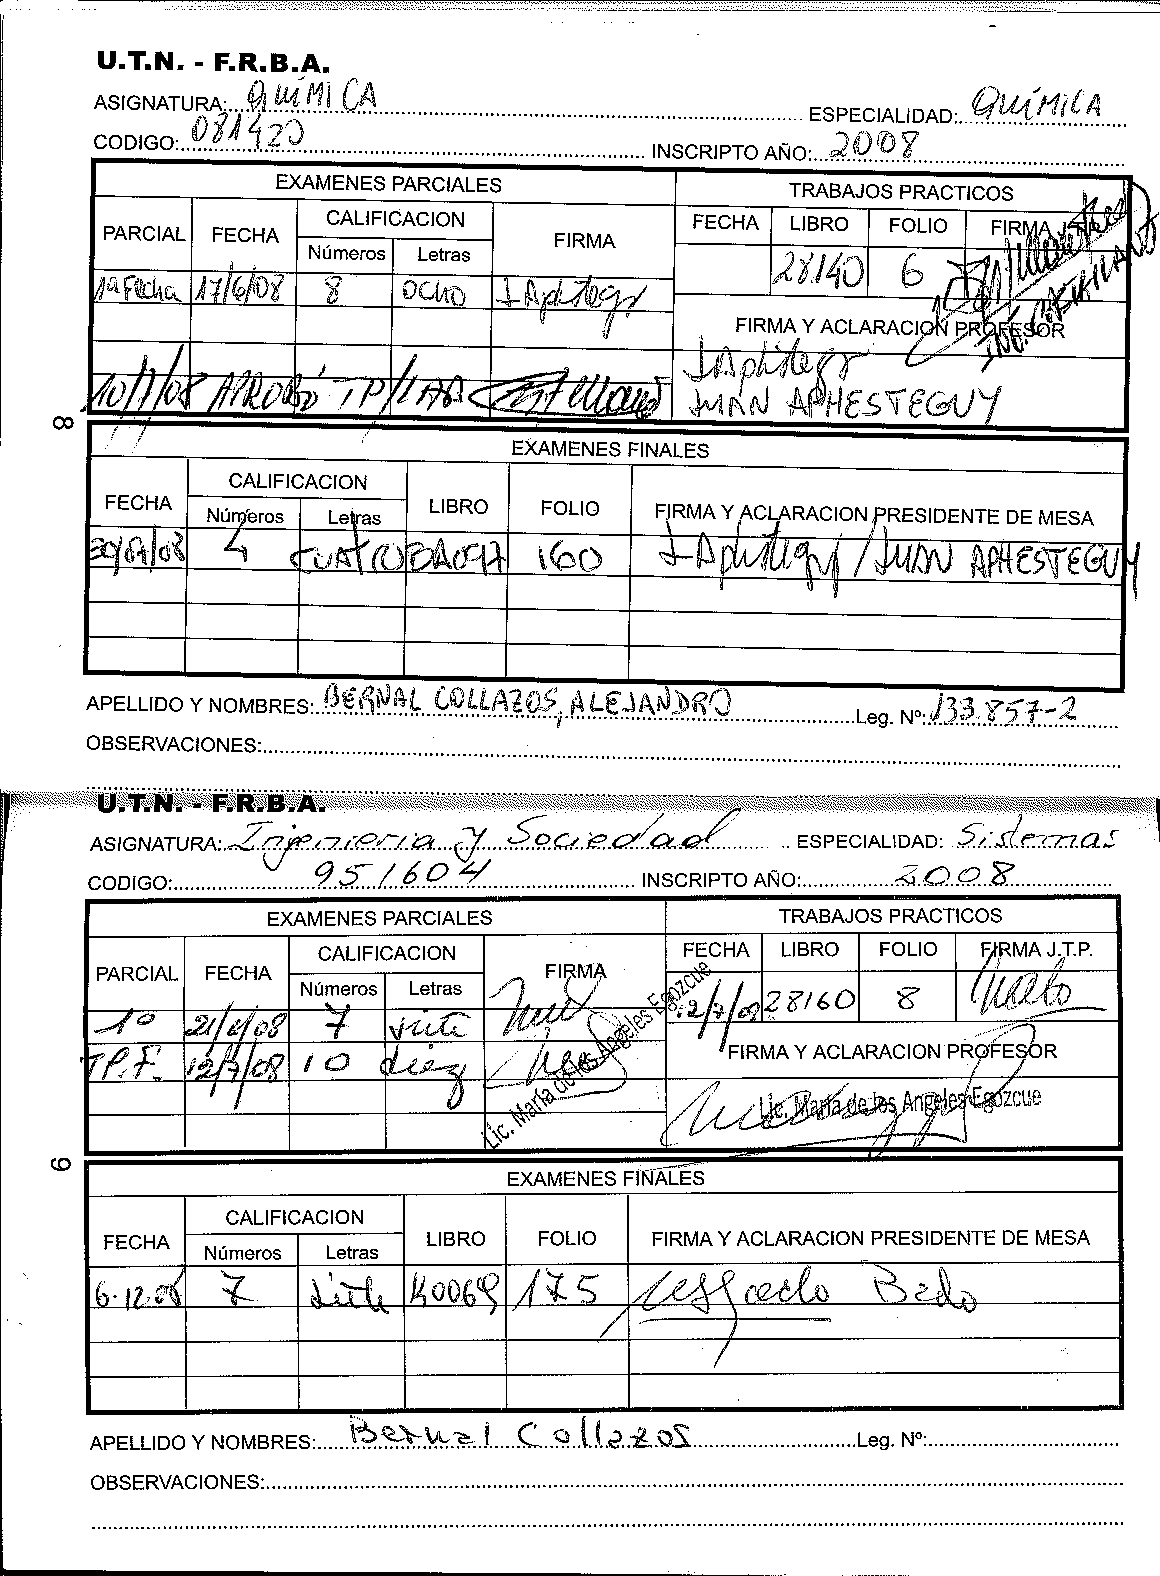 U.T.N. - F.R.B.A.
ASIGNATURA: QUÍMICA ESPECIALIDAD: QUÍMICA
CODIGO: 081420 INSCRIPTO AÑO: 2008
EXAMENES PARCIALES TRABAJOS PRACTICOS
PARCIAL FECHA CALIFICACION FIRMA FECHA LIBRO FOLIO FIRMA
Números Letras
1ª Fecha 17/6/08 8 OCHO 28140 6
FIRMA Y ACLARACION PROFESOR
10/7/08 APROBÓ TP/LAB JUAN APHESTEGUY
8
EXAMENES FINALES
FECHA CALIFICACION LIBRO FOLIO FIRMA Y ACLARACION PRESIDENTE DE MESA
Números Letras
4 CUATRO 160 / JUAN APHESTEGUY
APELLIDO Y NOMBRES: BERNAL COLLAZOS, ALEJANDRO Leg. Nº: 133.857-2
OBSERVACIONES:
U.T.N. - F.R.B.A.
ASIGNATURA: Ingenieria y Sociedad ESPECIALIDAD: Sistemas
CODIGO: 951604 INSCRIPTO AÑO: 2008
EXAMENES PARCIALES TRABAJOS PRACTICOS
PARCIAL FECHA CALIFICACION FIRMA FECHA LIBRO FOLIO FIRMA J.T.P.
Números Letras
1º 7 siete 12/7/08 28160 8
T.P.F. 12/7/08 10 diez Lic. María de los Angeles Egozcue
FIRMA Y ACLARACION PROFESOR
Lic. María de los Angeles Egozcue
9
EXAMENES FINALES
FECHA CALIFICACION LIBRO FOLIO FIRMA Y ACLARACION PRESIDENTE DE MESA
Números Letras
6.12.08 7 siete K0069 175
APELLIDO Y NOMBRES: Bernal Collazos Leg. Nº:
OBSERVACIONES: